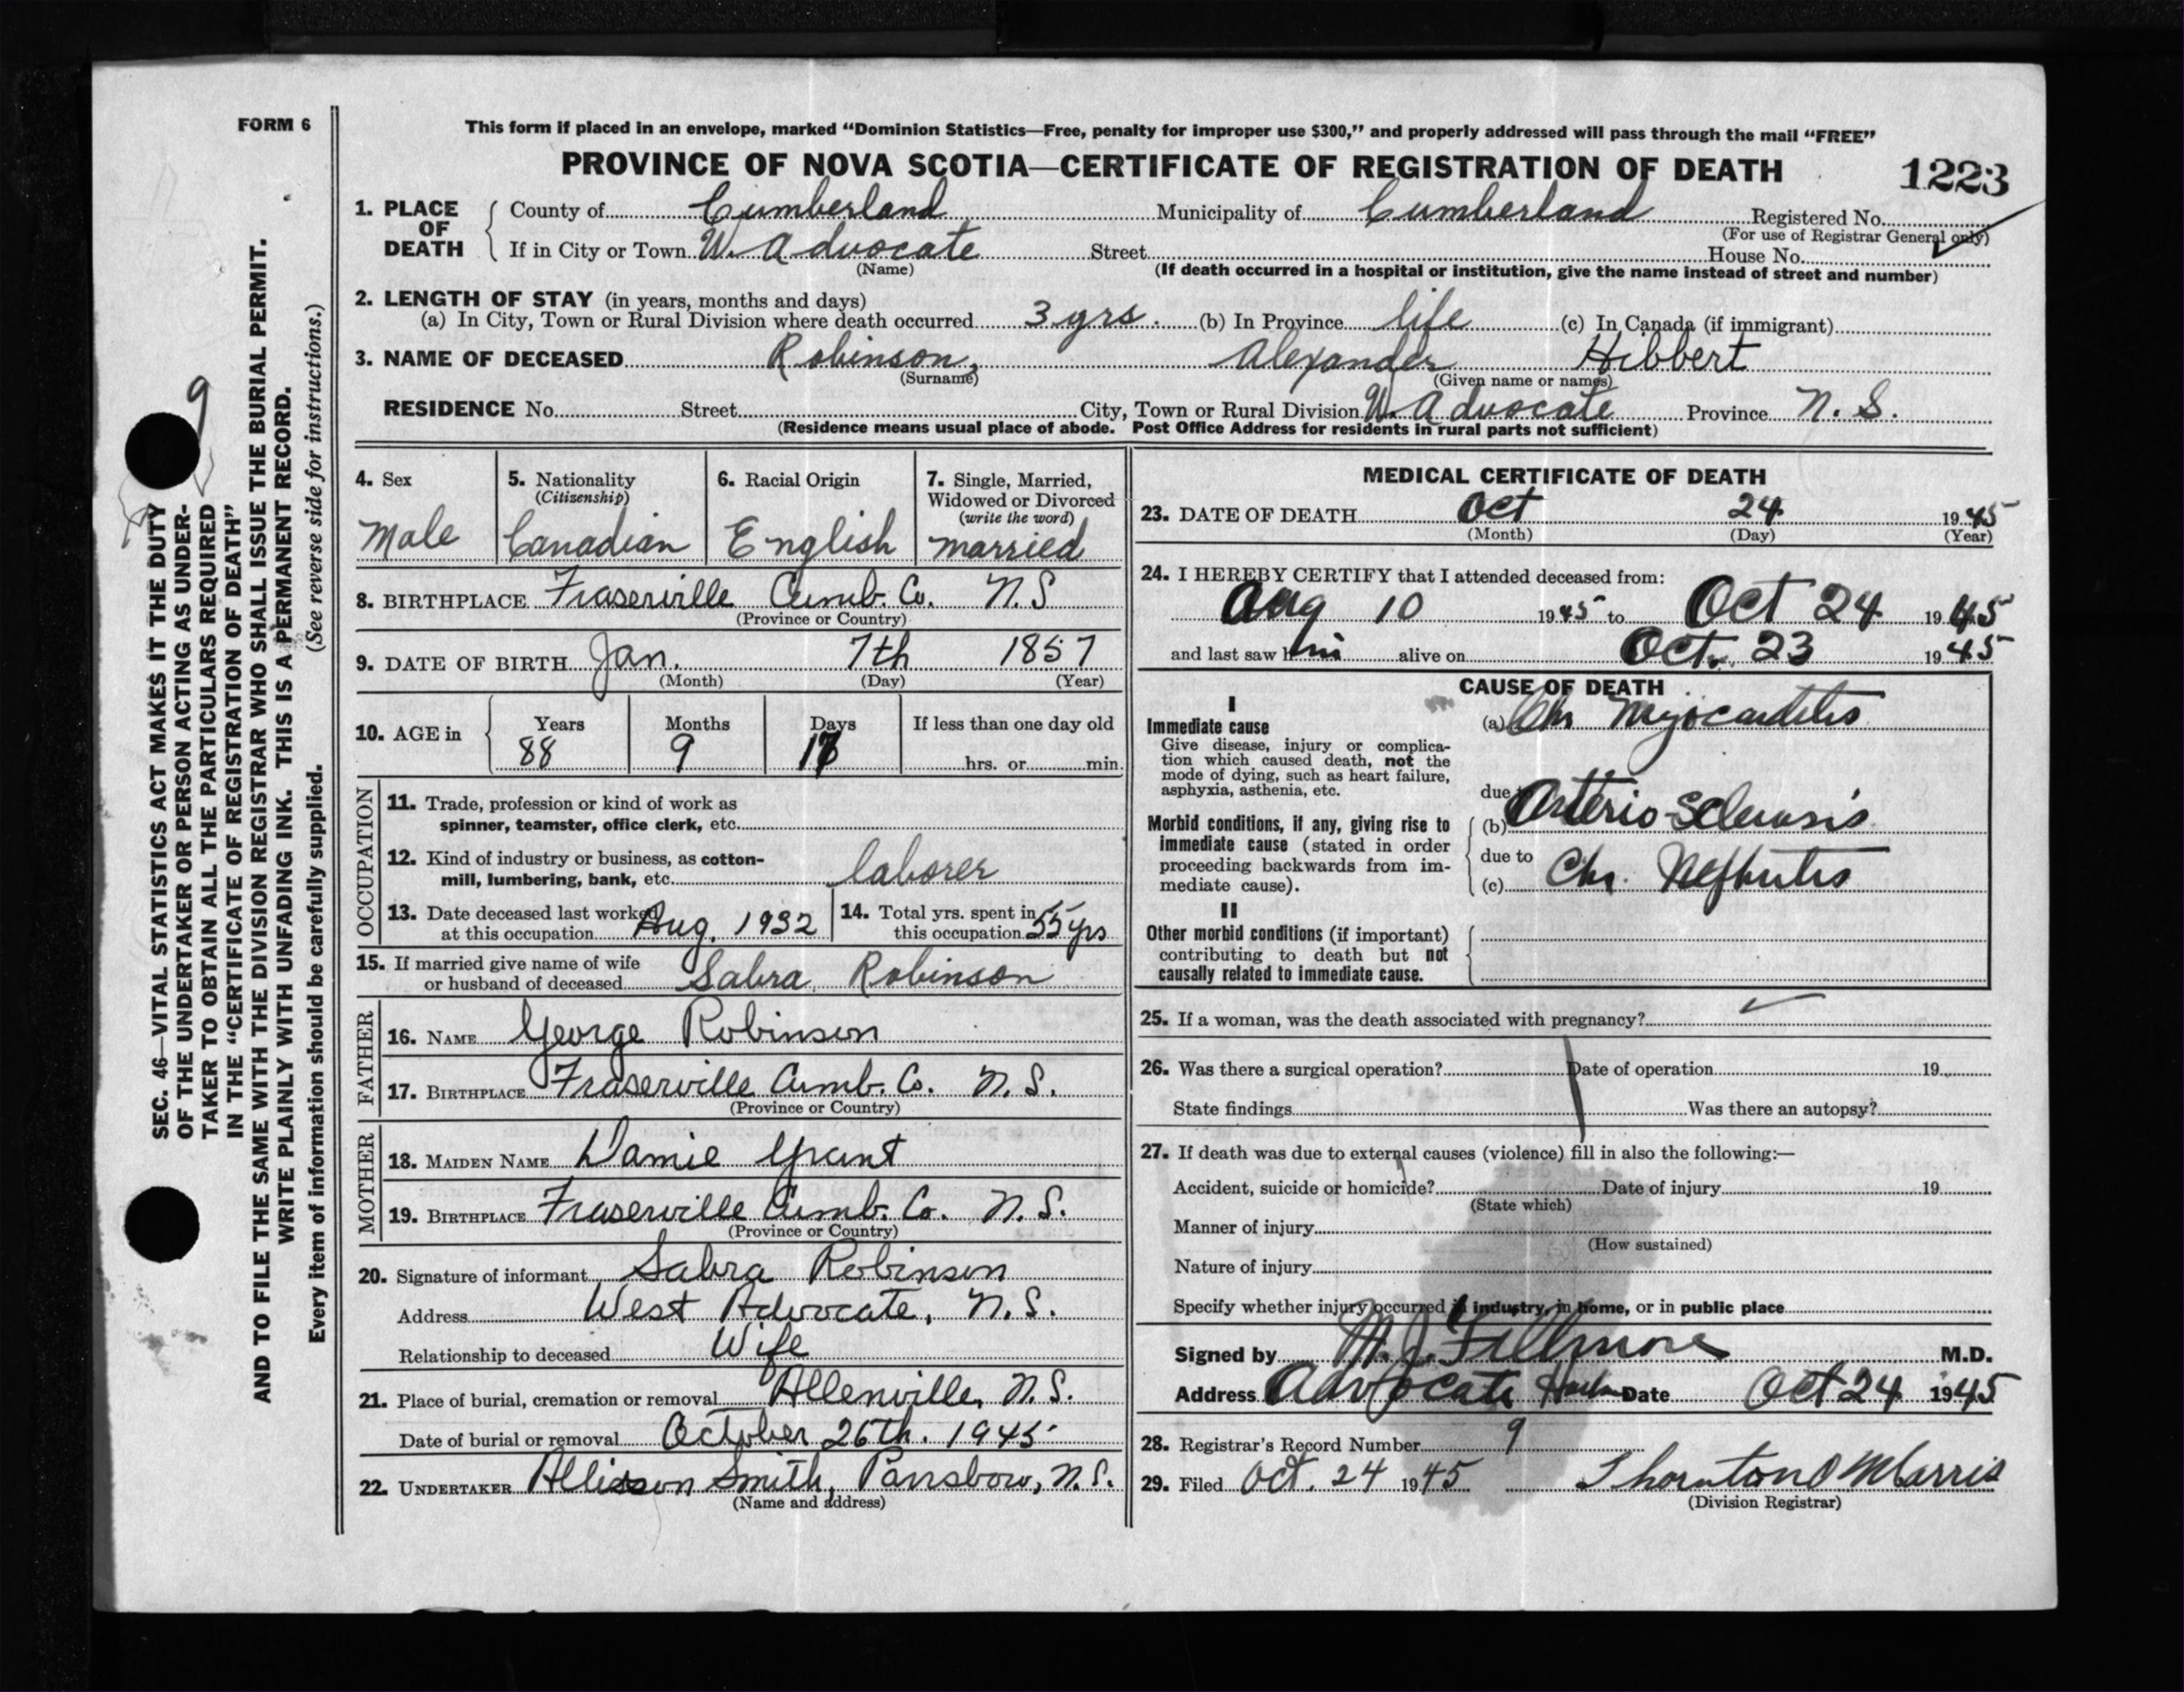 FORM 6
This form if placed in an envelope, marked “Dominion Statistics—Free, penalty for improper use $300,” and properly addressed will pass through the mail “FREE”
PROVINCE OF NOVA SCOTIA—CERTIFICATE OF REGISTRATION OF DEATH
1223
1. PLACE OF DEATH
County of Cumberland Municipality of Cumberland Registered No.
(For use of Registrar General only)
If in City or Town W. Advocate Street House No.
(Name) (If death occurred in a hospital or institution, give the name instead of street and number)
2. LENGTH OF STAY (in years, months and days)
(a) In City, Town or Rural Division where death occurred 3 yrs. (b) In Province life (c) In Canada (if immigrant)
3. NAME OF DECEASED Robinson, Alexander Hibbert
(Surname) (Given name or names)
RESIDENCE No. Street City, Town or Rural Division W. Advocate Province N. S.
(Residence means usual place of abode. Post Office Address for residents in rural parts not sufficient)
4. Sex
Male
5. Nationality
(Citizenship)
Canadian
6. Racial Origin
English
7. Single, Married,
Widowed or Divorced
(write the word)
married
8. BIRTHPLACE Fraserville Cumb. Co. N.S
(Province or Country)
9. DATE OF BIRTH Jan. 7th 1857
(Month) (Day) (Year)
10. AGE in
Years Months Days If less than one day old
88 9 17 hrs. or min.
OCCUPATION
11. Trade, profession or kind of work as
spinner, teamster, office clerk, etc.
12. Kind of industry or business, as cotton-
mill, lumbering, bank, etc. laborer
13. Date deceased last worked
at this occupation Aug. 1932
14. Total yrs. spent in
this occupation 55 yrs
15. If married give name of wife
or husband of deceased Sabra Robinson
FATHER
16. NAME George Robinson
17. BIRTHPLACE Fraserville Cumb. Co. N. S.
(Province or Country)
MOTHER
18. MAIDEN NAME Damie Grant
19. BIRTHPLACE Fraserville Cumb. Co. N. S.
(Province or Country)
20. Signature of informant Sabra Robinson
Address West Advocate, N. S.
Relationship to deceased Wife
21. Place of burial, cremation or removal Allenville, N.S.
Date of burial or removal October 26th. 1945
22. UNDERTAKER Allisson Smith, Parrsboro, N.S.
(Name and address)
MEDICAL CERTIFICATE OF DEATH
23. DATE OF DEATH Oct 24 1945
(Month) (Day) (Year)
24. I HEREBY CERTIFY that I attended deceased from:
Aug 10 1945 to Oct 24 1945
and last saw him alive on Oct. 23 1945
CAUSE OF DEATH
I
Immediate cause
Give disease, injury or complica-
tion which caused death, not the
mode of dying, such as heart failure,
asphyxia, asthenia, etc.
(a) Chr Myocarditis
due to
Morbid conditions, if any, giving rise to
immediate cause (stated in order
proceeding backwards from im-
mediate cause).
(b) Arterio-Sclerosis
due to
(c) Chr. Nephritis
II
Other morbid conditions (if important)
contributing to death but not
causally related to immediate cause.
25. If a woman, was the death associated with pregnancy?
26. Was there a surgical operation? Date of operation 19
State findings Was there an autopsy?
27. If death was due to external causes (violence) fill in also the following:—
Accident, suicide or homicide? Date of injury 19
(State which)
Manner of injury
(How sustained)
Nature of injury
Specify whether injury occurred in industry, in home, or in public place
Signed by M. J. Fillmore M.D.
Address Advocate Harbor Date Oct 24 1945
28. Registrar's Record Number 9
29. Filed Oct. 24 1945 Thornton Morris
(Division Registrar)
9
SEC. 46—VITAL STATISTICS ACT MAKES IT THE DUTY
OF THE UNDERTAKER OR PERSON ACTING AS UNDER-
TAKER TO OBTAIN ALL THE PARTICULARS REQUIRED
IN THE “CERTIFICATE OF REGISTRATION OF DEATH”
AND TO FILE THE SAME WITH THE DIVISION REGISTRAR WHO SHALL ISSUE THE BURIAL PERMIT.
WRITE PLAINLY WITH UNFADING INK. THIS IS A PERMANENT RECORD.
Every item of information should be carefully supplied. (See reverse side for instructions.)